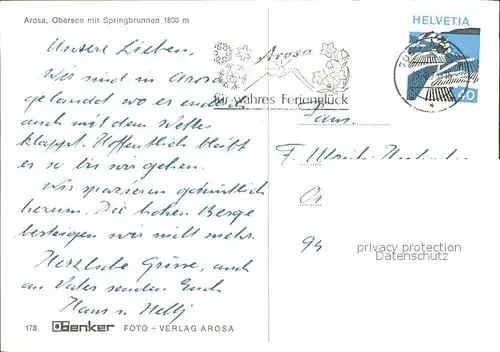 Arosa, Obersee mit Springbrunnen 1800 m
HELVETIA
Unsere Lieben,
Arosa
Wir sind in Arosa
gelandet wo er endlich
für wahres Ferienglück
40
auch mit dem Wetter
klappt. Hoffentlich bleibt
Fam.
es so bis wir gehen.
F. Ulrich
Wir spazieren gemütlich
herum. Die hohen Berge
besteigen wir nicht mehr.
94
privacy protection
Datenschutz
Herzliche Grüsse, auch
an Vater senden Euch
Hans u. Nelly
178 Denker FOTO + VERLAG AROSA